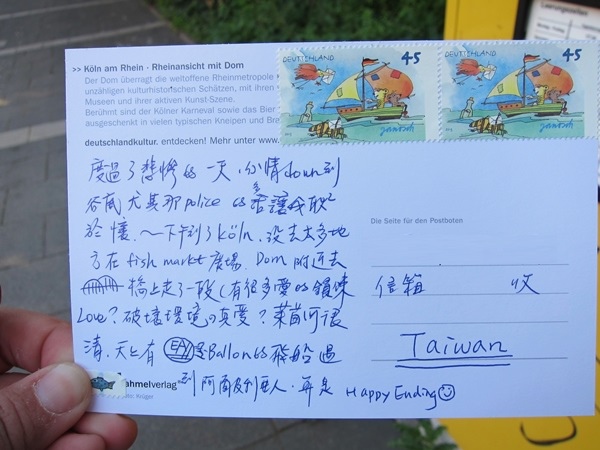 >> Köln am Rhein · Rheinansicht mit Dom
Der Dom überragt die weltoffene Rheinmetropole
unzähligen kulturhistorischen Schätzen, mit ihren
Museen und ihrer aktiven Kunst-Szene.
Berühmt sind der Kölner Karneval sowie das Bier
ausgeschenkt in vielen typischen Kneipen und
deutschlandkultur. entdecken! Mehr unter www.
DEUTSCHLAND 45
janosch
DEUTSCHLAND 45
janosch
度過了悲慘的一天,心情down到
谷底 尤其那police的 讓我
於懷.~下午到了Köln,沒去太多地
方在fish markt廣場.Dom附近去
橋上走了一段(有很多愛的鎖鍊
Love?破壞環境の真愛?萊茵河很
清.天上有 Ballon的飛船過
到阿 利 人.算是 Happy Ending
ahmelverlag
Foto: Krüger
Die Seite für den Postboten
信箱 收
Taiwan